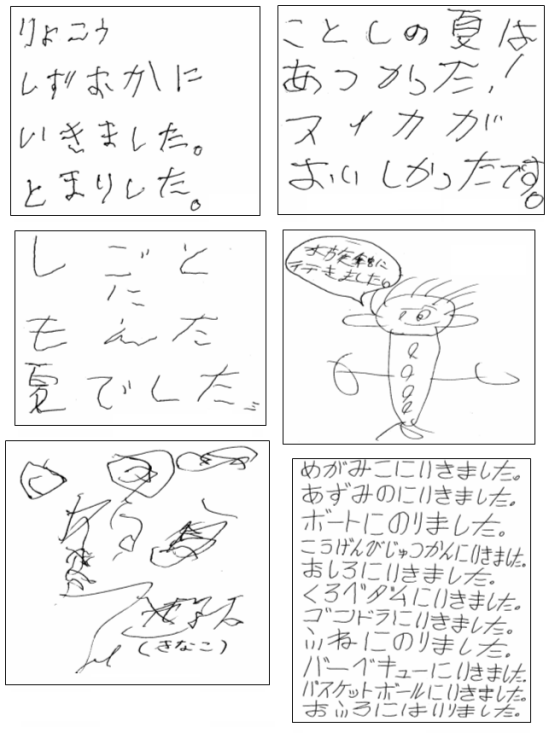 りょこう
しずおかに
いきました。
とまりした。
ことしの夏は
あつかった!
スイカが
おいしかったです。
しごと
だ
もんた
夏でした。
水族館に
行きました。
(きなこ)
めがみこにいきました。
あずみのにいきました。
ボートにのりました。
こうげんびじゅつかんにいきました。
おしろにいきました。
くろベダムにいきました。
ゴンドラにいきました。
ふねにのりました。
バーベキューにいきました。
バスケットボールにいきました。
おふろにはいりました。